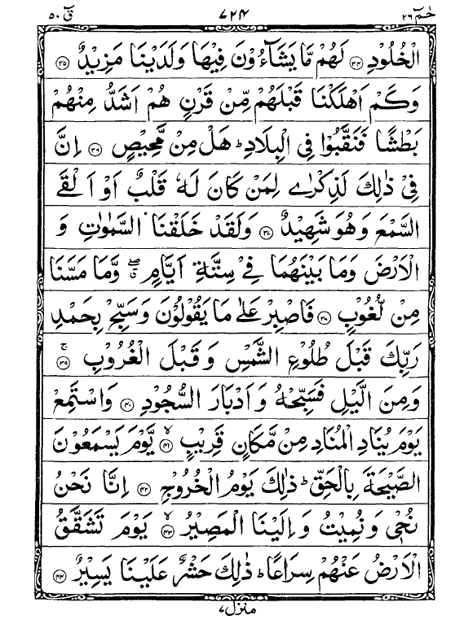 حٰمٓ ٢٦ ٧٢٤ قٓ ٥٠
الْخُلُوْدِ ﴿٣٤﴾ لَهُمْ مَّا يَشَآءُوْنَ فِيْهَا وَلَدَيْنَا مَزِيْدٌ ﴿٣٥﴾
وَكَمْ اَهْلَكْنَا قَبْلَهُمْ مِّنْ قَرْنٍ هُمْ اَشَدُّ مِنْهُمْ
بَطْشًا فَنَقَّبُوْا فِى الْبِلَادِ ؕ هَلْ مِنْ مَّحِيْصٍ ﴿٣٦﴾ اِنَّ
فِيْ ذٰلِكَ لَذِكْرٰى لِمَنْ كَانَ لَهٗ قَلْبٌ اَوْ اَلْقَى
السَّمْعَ وَهُوَ شَهِيْدٌ ﴿٣٧﴾ وَلَقَدْ خَلَقْنَا السَّمٰوٰتِ وَ
الْاَرْضَ وَمَا بَيْنَهُمَا فِيْ سِتَّةِ اَيَّامٍ ۖ وَّمَا مَسَّنَا
مِنْ لُّغُوْبٍ ﴿٣٨﴾ فَاصْبِرْ عَلٰى مَا يَقُوْلُوْنَ وَسَبِّحْ بِحَمْدِ
رَبِّكَ قَبْلَ طُلُوْعِ الشَّمْسِ وَقَبْلَ الْغُرُوْبِ ﴿٣٩﴾ ۚ
وَمِنَ الَّيْلِ فَسَبِّحْهُ وَاَدْبَارَ السُّجُوْدِ ﴿٤٠﴾ وَاسْتَمِعْ
يَوْمَ يُنَادِ الْمُنَادِ مِنْ مَّكَانٍ قَرِيْبٍ ﴿٤١﴾ ۙ يَّوْمَ يَسْمَعُوْنَ
الصَّيْحَةَ بِالْحَقِّ ؕ ذٰلِكَ يَوْمُ الْخُرُوْجِ ﴿٤٢﴾ اِنَّا نَحْنُ
نُحْيٖ وَنُمِيْتُ وَاِلَيْنَا الْمَصِيْرُ ﴿٤٣﴾ ۙ يَوْمَ تَشَقَّقُ
الْاَرْضُ عَنْهُمْ سِرَاعًا ؕ ذٰلِكَ حَشْرٌ عَلَيْنَا يَسِيْرٌ ﴿٤٤﴾
منزل ٧